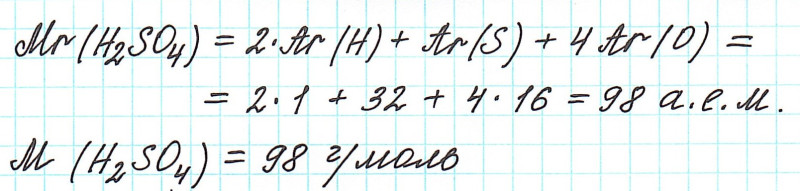 Mr(H₂SO₄) = 2·Ar(H) + Ar(S) + 4Ar(O) =
= 2·1 + 32 + 4·16 = 98 а.е.м.
M (H₂SO₄) = 98 г/моль